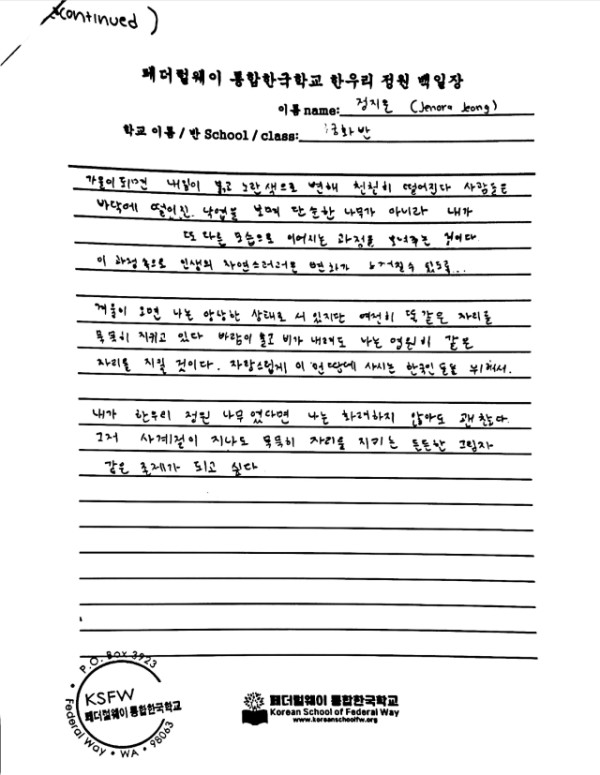 (continued)
페더럴웨이 통합한국학교 한우리 정원 백일장
이름 name: 정지온 (Jenora Jeong)
학교 이름 / 반 School / class: 금화반
가을이 되면 내 잎이 붉고 노란색으로 변해 천천히 떨어진다 사람들은
바닥에 떨어진 낙엽을 보며 단순한 나무가 아니라 내가
또 다른 모습으로 이어지는 과정을 보여주는 것이다
이 과정 속으로 인생의 자연스러운 변화가 느껴질수 있도록...
겨울이 오면 나는 앙상한 상태로 서 있지만 여전히 똑같은 자리를
묵묵히 지키고 있다 바람이 불고 비가 내려도 나는 영원히 같은
자리를 지킬 것이다. 자랑스럽게 이 땅에 사시는 한국인들을 위해서.
내가 한우리 정원 나무였다면 나는 화려하지 않아도 괜찮다.
그저 사계절이 지나도 묵묵히 자리를 지키는 든든한 그림자
같은 존제가 되고 싶다
P.O. BOX 3923
KSFW
페더럴웨이 통합한국학교
Federal Way • WA • 98063
페더럴웨이 통합한국학교
Korean School of Federal Way
www.koreanschoolfw.org